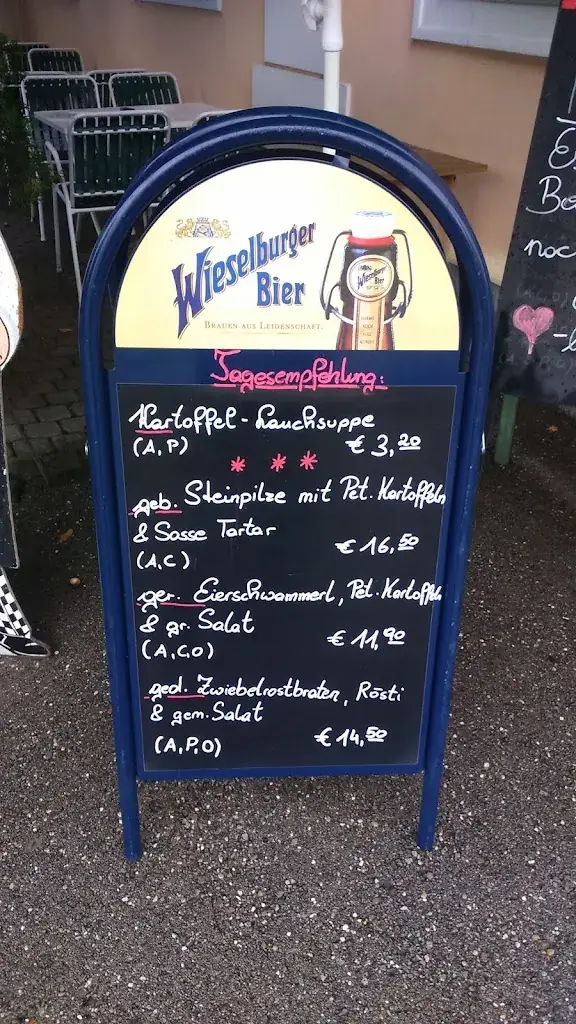 Wieselburger
Bier
BRAUEN AUS LEIDENSCHAFT.
Wieselburger
Bier
Tagesempfehlung:
Kartoffel-Lauchsuppe
(A,P) € 3,20
* * *
geb. Steinpilze mit Pet. Kartoffeln
& Sosse Tartar
€ 16,50
(A,C)
ger. Eierschwammerl, Pet. Kartoffeln
& gr. Salat
€ 11,90
(A,C,O)
ged. Zwiebelrostbraten, Rösti
& gem. Salat
(A,P,O) € 14,50
noc